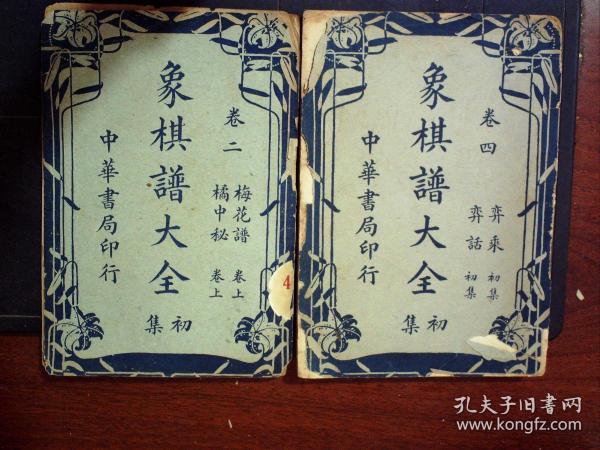 卷二
梅花譜 卷上
橘中秘 卷上
象棋譜大全
初集
中華書局印行
4
卷四
弈乘 初集
弈話 初集
象棋譜大全
初集
中華書局印行
孔夫子旧书网
www.kongfz.com